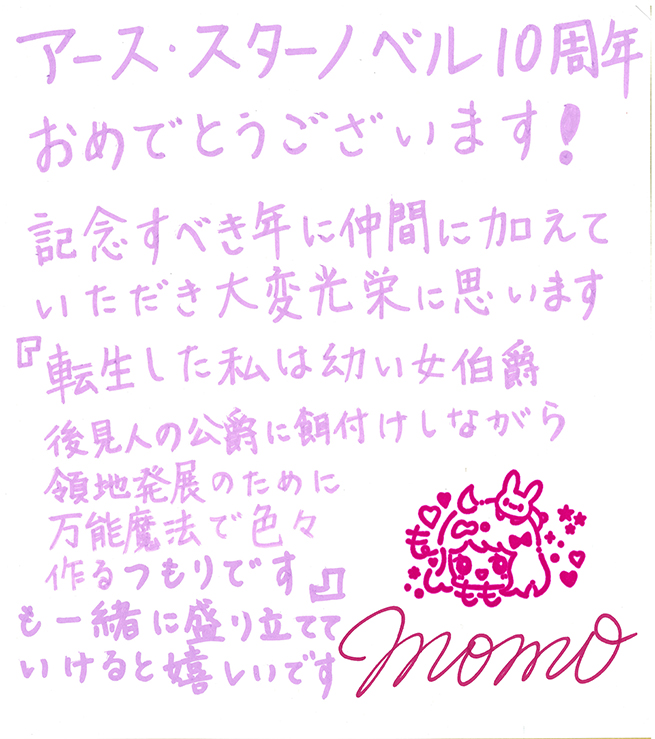 アース・スターノベル10周年
おめでとうございます!
記念すべき年に仲間に加えて
いただき大変光栄に思います
『転生した私は幼い女伯爵
後見人の公爵に餌付けしながら
領地発展のために
万能魔法で色々
作るつもりです』
も一緒に盛り立てて
いけると嬉しいです
もり
もも
momo